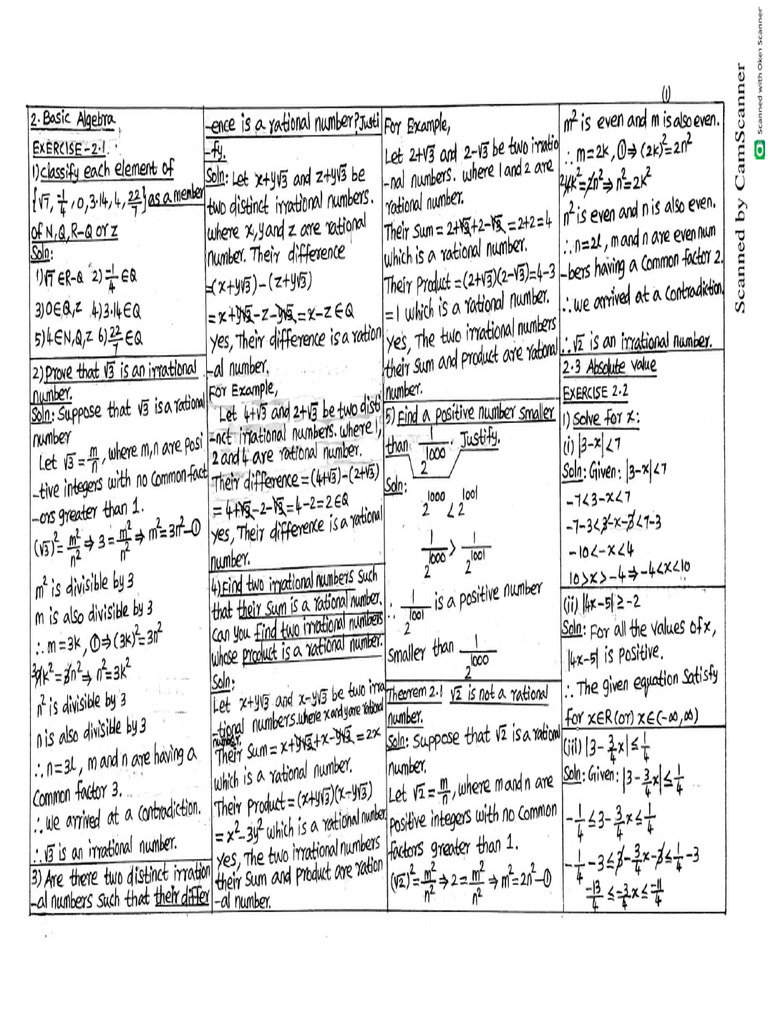 (1)
2. Basic Algebra
EXERCISE-2.1.
1) classify each element of
{√7, -1/4, 0, 3.14, 4, 22/7} as a member
of N, Q, R-Q or Z
Soln:
1) √7 ∈ R-Q 2) -1/4 ∈ Q
3) 0 ∈ Q, Z 4) 3.14 ∈ Q
5) 4 ∈ N, Q, Z 6) 22/7 ∈ Q
2) Prove that √3 is an irrational
number.
Soln: Suppose that √3 is a rational
number
Let √3 = m/n, where m,n are posi
-tive integers with no Common fact
-ors greater than 1.
(√3)² = m²/n² ⇒ 3 = m²/n² ⇒ m² = 3n² — ①
m² is divisible by 3
m is also divisible by 3
∴ m = 3k, ① ⇒ (3k)² = 3n²
9k² = 3n² ⇒ n² = 3k²
n² is divisible by 3
n is also divisible by 3
∴ n = 3l, m and n are having a
Common factor 3.
∴ we arrived at a contradiction.
∴ √3 is an irrational number.
3) Are there two distinct irration
-al numbers such that their differ
-ence is a rational number? Justi
-fy.
Soln: Let x+y√3 and z+y√3 be
two distinct irrational numbers.
where x, y and z are rational
number. Their difference
= (x+y√3) - (z+y√3)
= x+y√3 - z - y√3 = x - z ∈ Q
Yes, Their difference is a ration
-al number.
For Example,
Let 4+√3 and 2+√3 be two disti
-nct irrational numbers. where 1,
2 and 4 are rational number.
Their difference = (4+√3) - (2+√3)
= 4+√3 - 2 - √3 = 4 - 2 = 2 ∈ Q
Yes, Their difference is a rational
number.
4) Find two irrational numbers such
that their sum is a rational number.
can you find two irrational numbers
whose product is a rational number.
Soln:
Let x+y√3 and x-y√3 be two irra
-tional numbers. where x and y are rational
number.
Their Sum = x+y√3 + x-y√3 = 2x
which is a rational number.
Their Product = (x+y√3)(x-y√3)
= x² - 3y² which is a rational number
Yes, The two irrational numbers
their Sum and Product are ration
-al number.
For Example,
Let 2+√3 and 2-√3 be two irratio
-nal numbers. where 1 and 2 are
rational number.
Their Sum = 2+√3+2-√3 = 2+2 = 4
which is a rational number.
Their Product = (2+√3)(2-√3) = 4-3
= 1 which is a rational number.
Yes, The two irrational numbers
their Sum and product are rational
number.
5) Find a positive number smaller
than 1/2^1000. Justify.
Soln:
2^1000 < 2^1001
1/2^1000 > 1/2^1001
∴ 1/2^1001 is a positive number
smaller than 1/2^1000
Theorem 2.1 √2 is not a rational
number.
Soln: Suppose that √2 is a rational
number.
Let √2 = m/n, where m and n are
Positive integers with no Common
factors greater than 1.
(√2)² = m²/n² ⇒ 2 = m²/n² ⇒ m² = 2n² — ①
m² is even and m is also even.
∴ m = 2k, ① ⇒ (2k)² = 2n²
4k² = 2n² ⇒ n² = 2k²
n² is even and n is also even.
∴ n = 2l, m and n are even num
-bers having a Common factor 2.
∴ we arrived at a Contradiction.
∴ √2 is an irrational number.
2.3 Absolute value
EXERCISE 2.2
1) Solve for x:
(i) |3-x| < 7
Soln: Given: |3-x| < 7
-7 < 3-x < 7
-7-3 < 3-x-3 < 7-3
-10 < -x < 4
10 > x > -4 ⇒ -4 < x < 10
(ii) |4x-5| ≥ -2
Soln: For all the values of x,
|4x-5| is Positive.
∴ The given equation Satisfy
for x∈R (or) x∈(-∞,∞)
(iii) |3 - 3/4 x| ≤ 1/4
Soln: Given: |3 - 3/4 x| ≤ 1/4
-1/4 ≤ 3 - 3/4 x ≤ 1/4
-1/4 - 3 ≤ 3 - 3/4 x - 3 ≤ 1/4 - 3
-13/4 ≤ -3/4 x ≤ -11/4
Scanned by CamScanner
Scanned with Oken Scanner